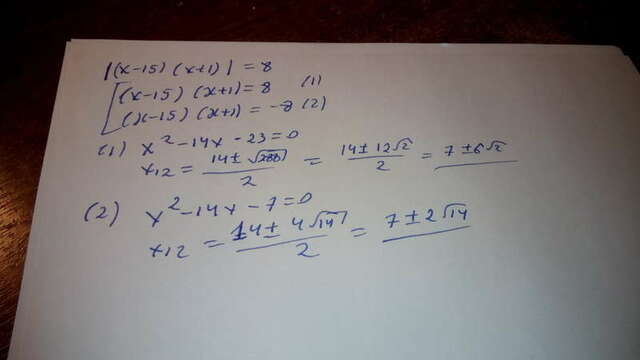 |(x-15) (x+1)| = 8
[(x-15) (x+1) = 8 (1)
(x-15) (x+1) = -8 (2)
(1) x²-14x-23=0
x12 = (14 ± √288)/2 = (14 ± 12√2)/2 = 7 ± 6√2
(2) x²-14x-7=0
x12 = (14 ± 4√14)/2 = 7 ± 2√14